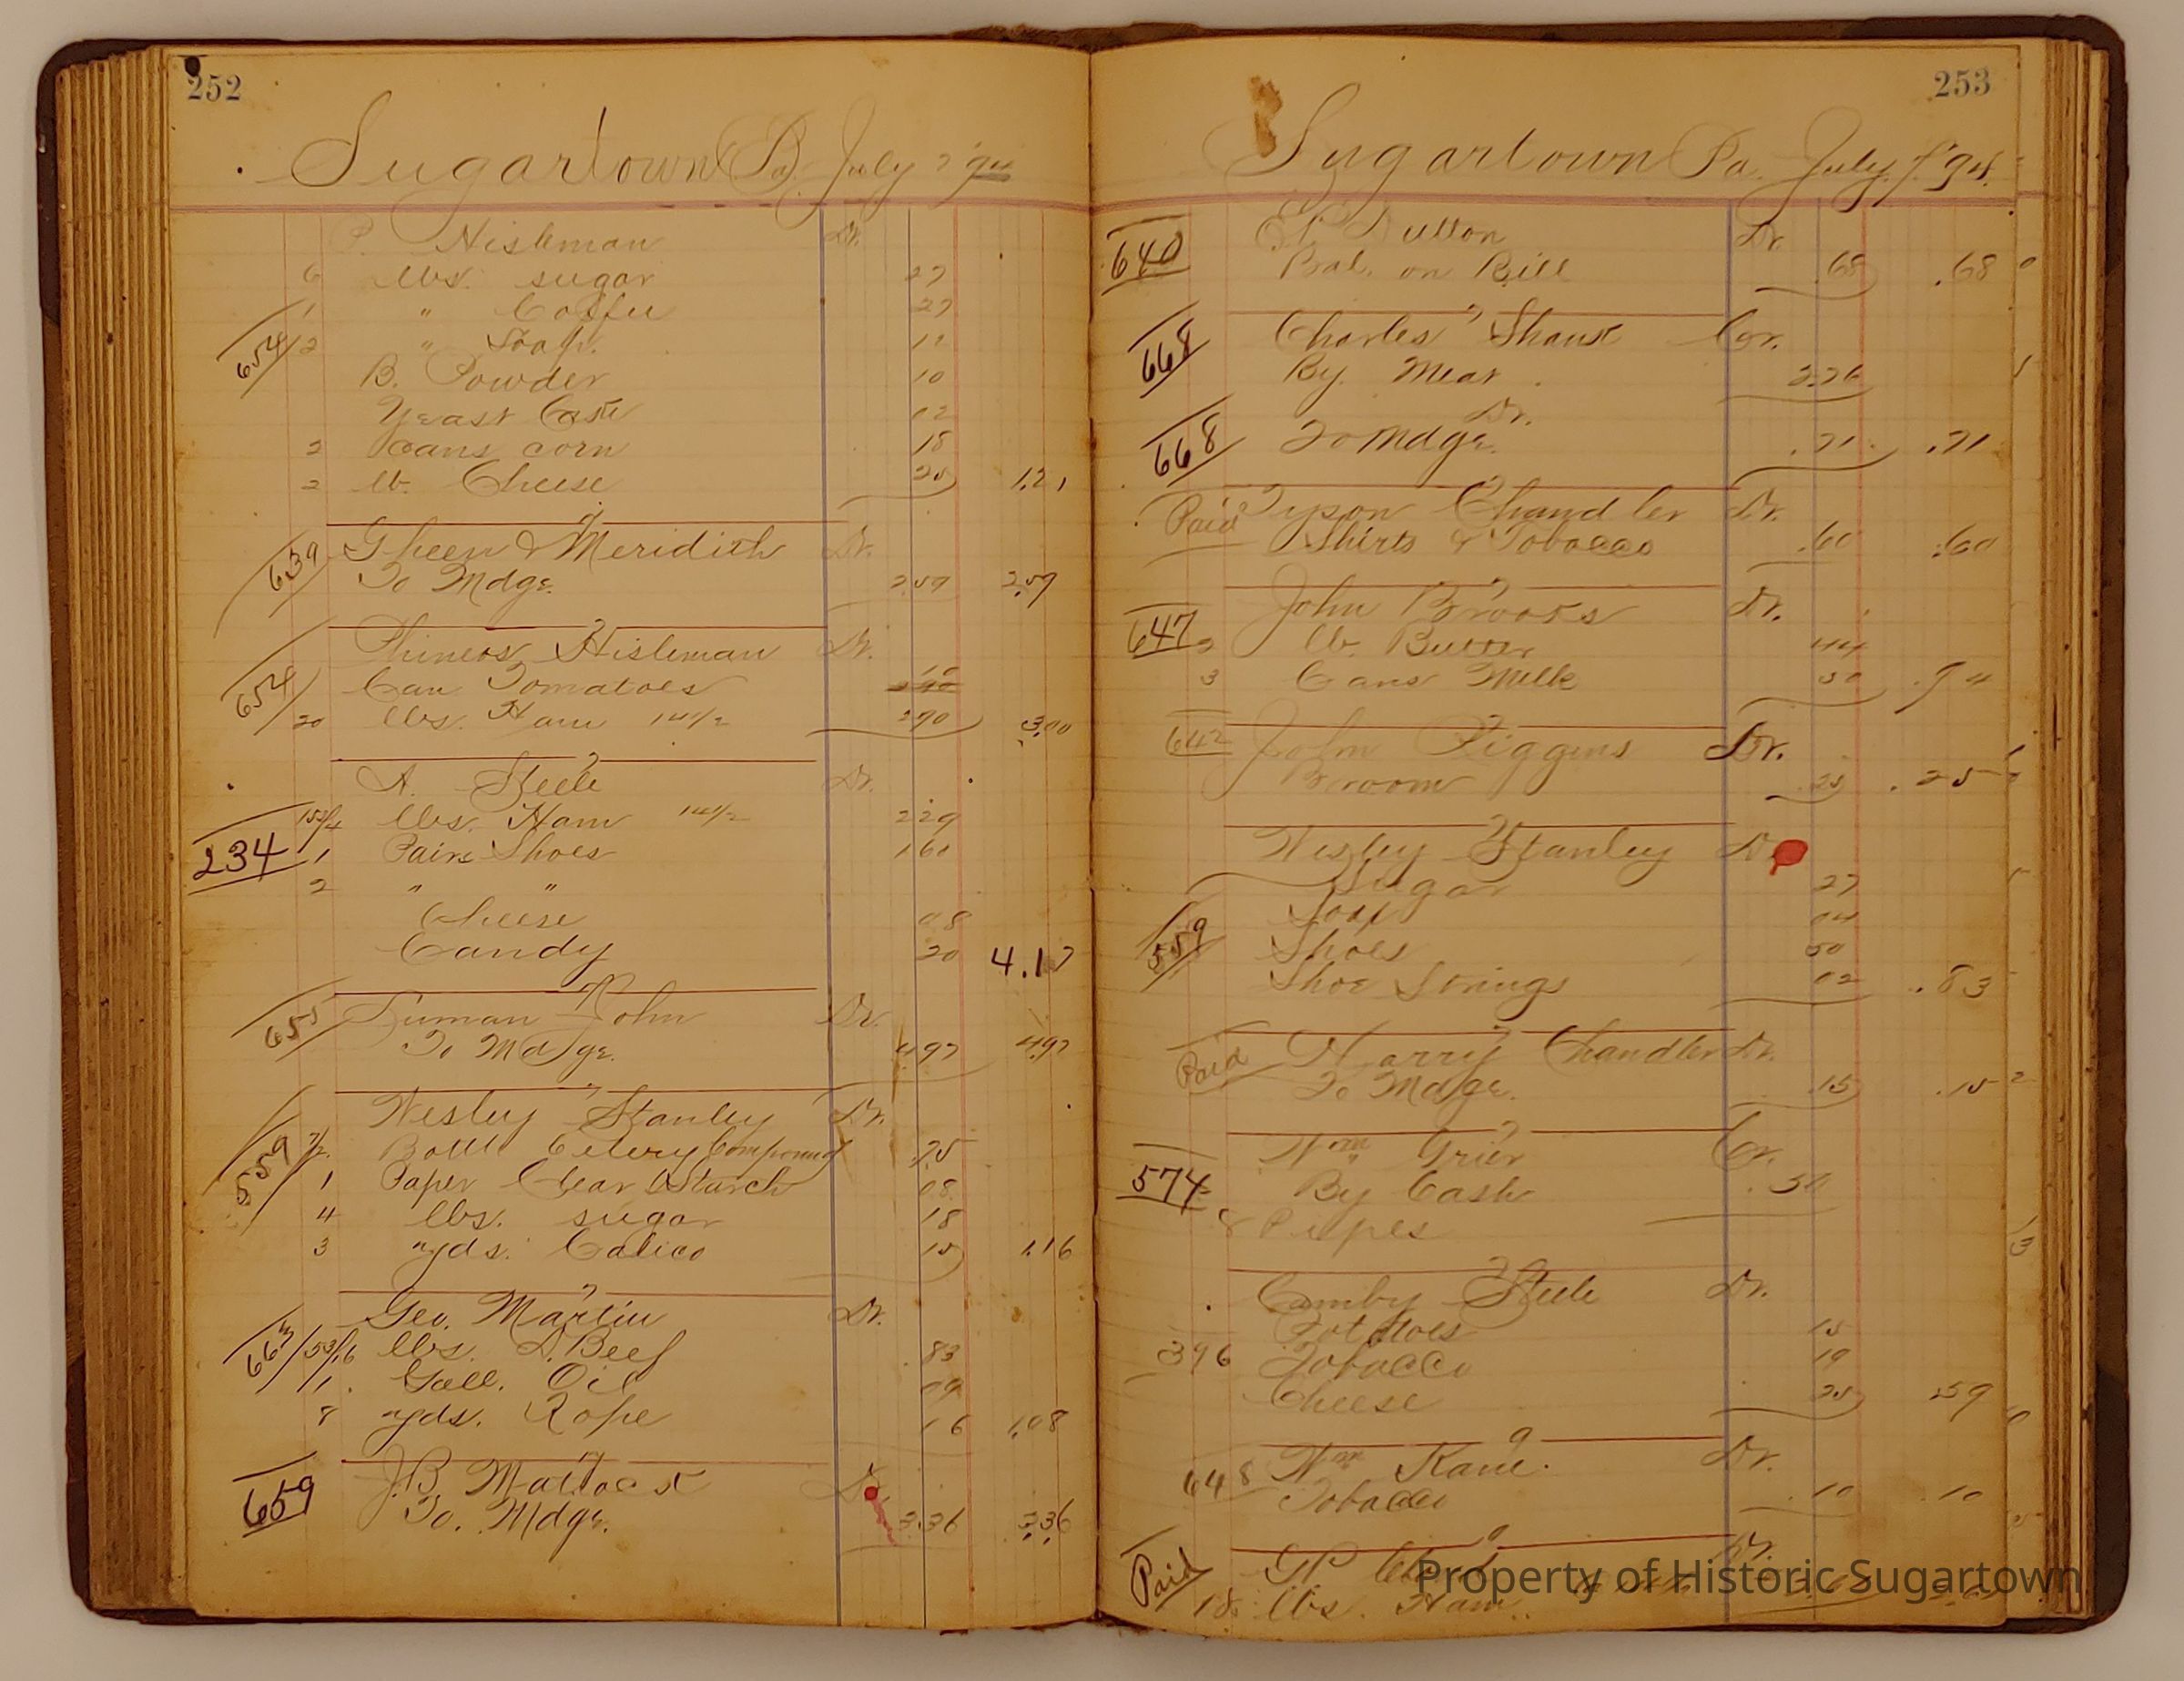 252
Sugartown Pa. July 7 '94
P. Hisleman Dr.
6 lbs. sugar 27
1 " Coffee 27
654 2 " Soap. 12
B. Powder 10
Yeast Cake 02
2 Cans corn 18
2 lb. Cheese 25 1.21
7
639 Gheen & Meridith Dr.
To Mdge. 2.59 2.59
7
Phineas Hisleman Dr.
654 Can Tomatoes 10
20 lbs. Ham 14 1/2 290 3.00
7
A. Steele Dr.
15 3/4 lbs. Ham 14 1/2 229
234 1 Pair Shoes 160
2 " "
Cheese 08
Candy 20 4.17
7
655 Truman John Dr.
To Mdge. 4.97 4.97
7
Wesley Stanley Dr.
559 Bottle Celery Compound .75
1 Paper Clear Starch 08
4 lbs. sugar 18
3 yds. Calico 15 1.16
7
Geo. Martin Dr.
663 lbs. D. Beef .83
1 Gall. Oil 09
8 yds. Rope 16 1.08
7
659 J.B. Mattack Dr.
To. Mdge. 3.36 3.36
253
Sugartown Pa. July 7 '94.
640 Dutton Dr.
Bal. on Bill .68 .68
7
668 Charles Shank Cr.
By Meat 2.26
Dr.
668 To Mdge. .71 .71
7
Paid Tyson Chandler Dr.
Shirts & Tobacco .60 .60
7
John Brooks Dr.
647 2 lb. Butter 44
3 Cans Milk 50 .94
7
642 John Riggins Dr.
Broom .25 .25
7
Wesley Stanley Dr.
Sugar 27
Soap 04
559 Shoes 50
Shoe Strings 02 .83
7
Paid Harry Chandler Dr.
To Mdge. .15 .15
7
Wm Grier Cr.
574 By Cash .50
8 Pipes
7
Camby Steele Dr.
Potatoes 15
396 Tobacco 19
Cheese 25 .59
9
648 Wm Kane. Dr.
Tobacco .10 .10
9
Paid Dr.
18 lbs. Ham
Property of Historic Sugartown